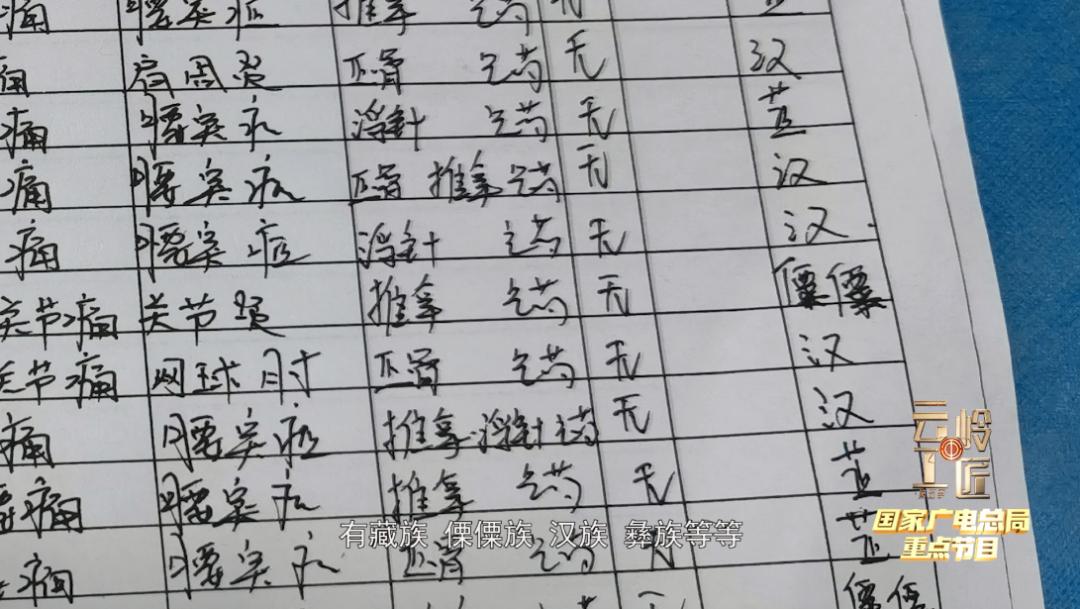 痛 腰突症 推拿 包药 无
痛 肩周炎 正骨 包药 无 汉
痛 腰突症 浮针 包药 无
痛 腰突症 正骨 推拿 包药 无 汉
痛 腰突症 浮针 包药 无 汉
关节痛 关节炎 推拿 包药 无 傈僳
关节痛 网球肘 正骨 包药 无 汉
痛 腰突症 推拿 浮针 包药 无 汉
腰痛 腰突症 推拿 包药 无
痛 腰突症 正骨 包药 无
傈僳
有藏族 傈僳族 汉族 彝族等等
云岭工匠
国家广电总局
重点节目